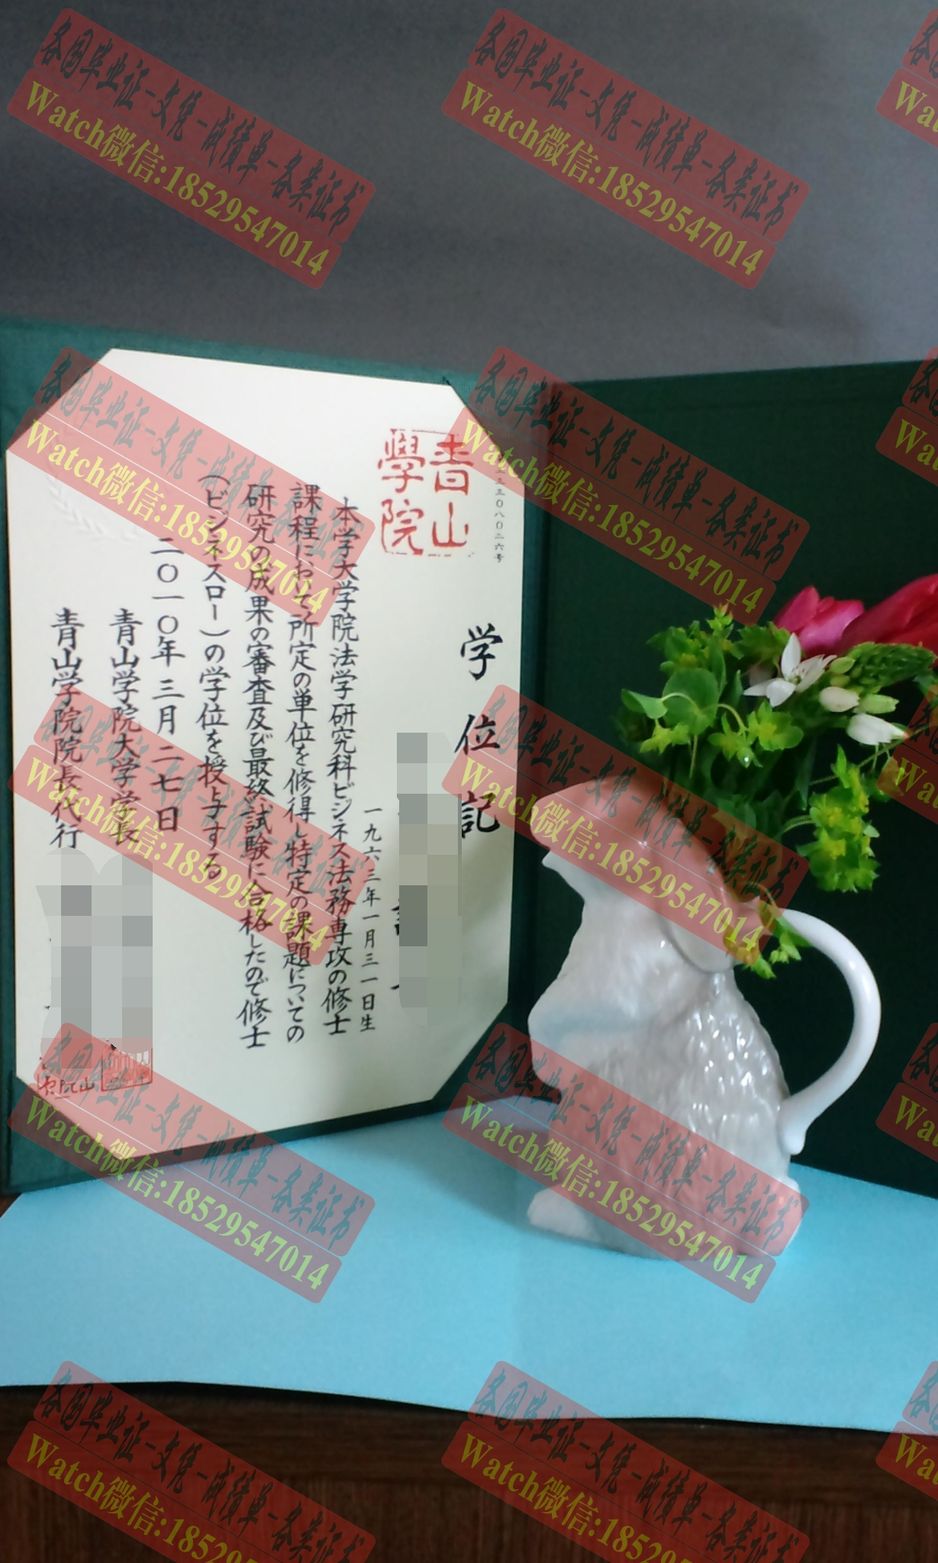 学位記
青山學院
三三〇八〇二六号
一九六三年一月三一日生
本学大学院法学研究科ビジネス法務専攻の修士
課程において所定の単位を修得し特定の課題についての
研究の成果の審査及び最終試験に合格したので修士
（ビジネスロー）の学位を授与する
二〇一〇年三月二七日
青山学院大学学長
青山学院院長代行
各国毕业证-文凭-成绩单-各类证书
Watch微信:18529547014
各国毕业证-文凭-成绩单-各类证书
Watch微信:18529547014
各国毕业证-文凭-成绩单-各类证书
Watch微信:18529547014
各国毕业证-文凭-成绩单-各类证书
Watch微信:18529547014
各国毕业证-文凭-成绩单-各类证书
Watch微信:18529547014
各国毕业证-文凭-成绩单-各类证书
Watch微信:18529547014
各国毕业证-文凭-成绩单-各类证书
Watch微信:18529547014
各国毕业证-文凭-成绩单-各类证书
Watch微信:18529547014
各国毕业证-文凭-成绩单-各类证书
各国毕业证-文凭-成绩单-各类证书